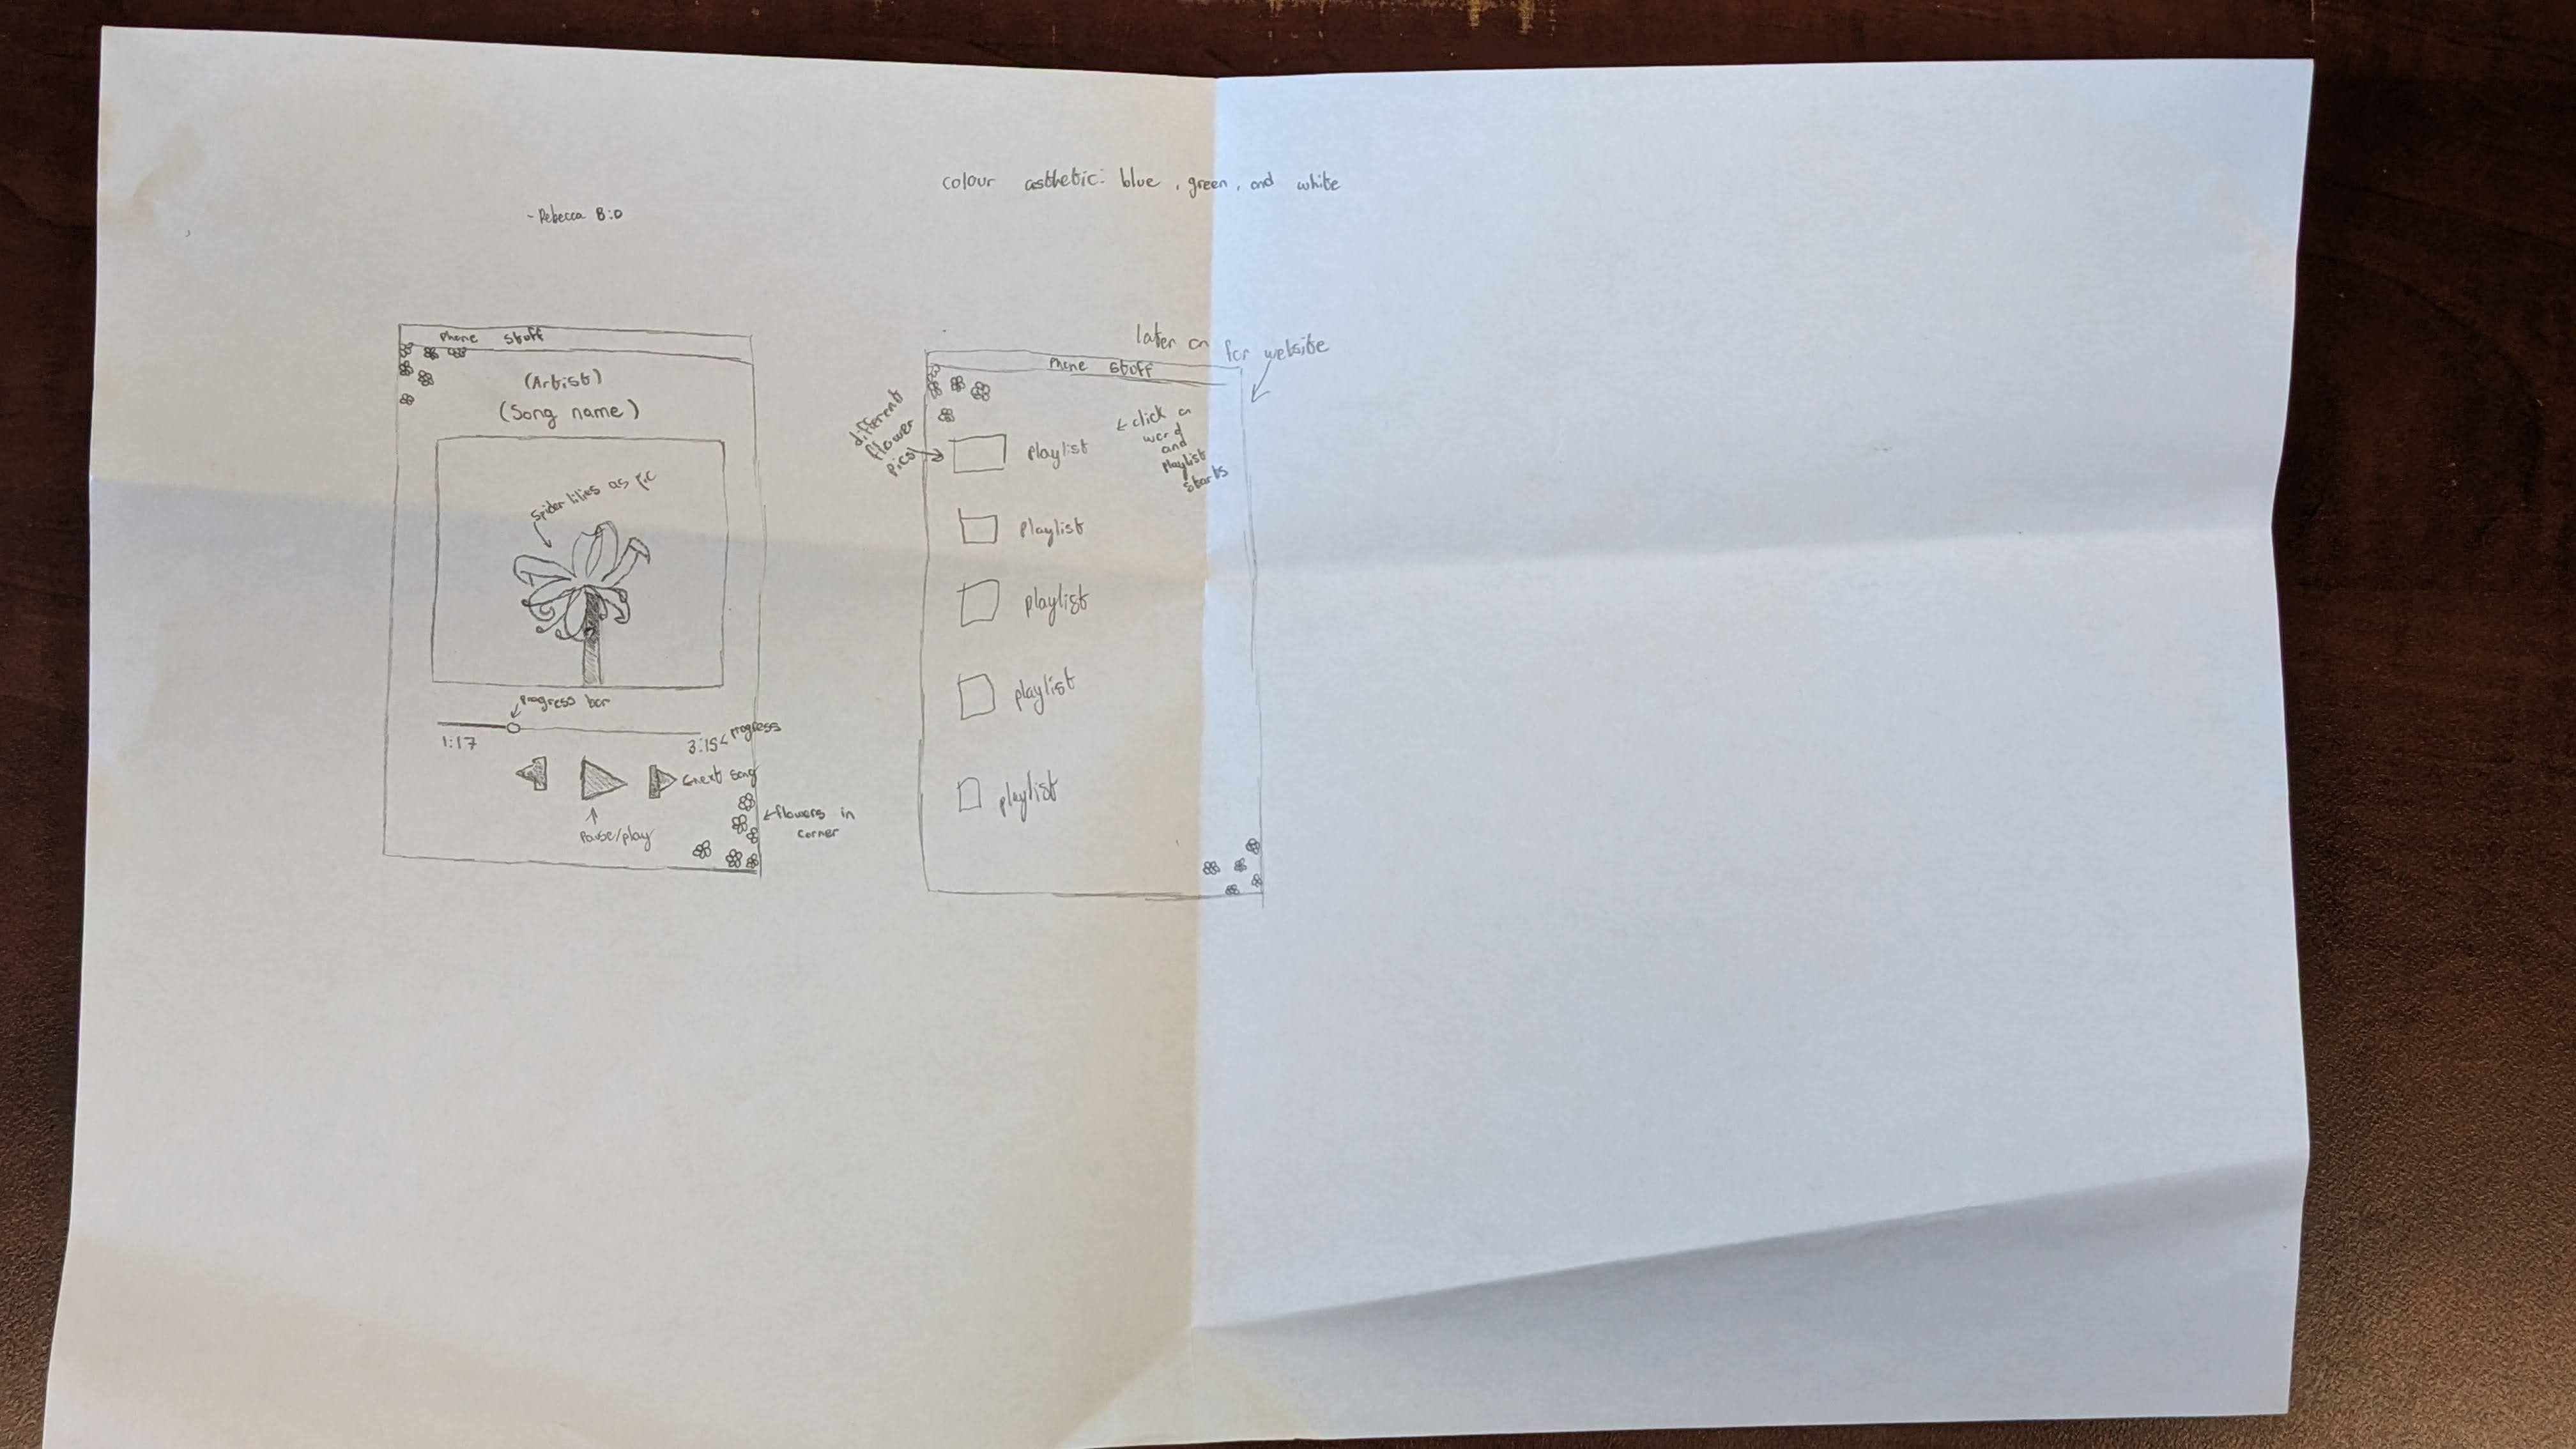 colour asthetic: blue, green, and white
- Rebecca B:D
Phone stuff
(Artist)
(Song name)
Spider lilies as pic
progress bar
1:17
3:15 progress
next song
Pause/play
flowers in
corner
later on for website
Phone stuff
different
flower
pics
playlist
click on
word
and
playlist
starts
playlist
playlist
playlist
playlist